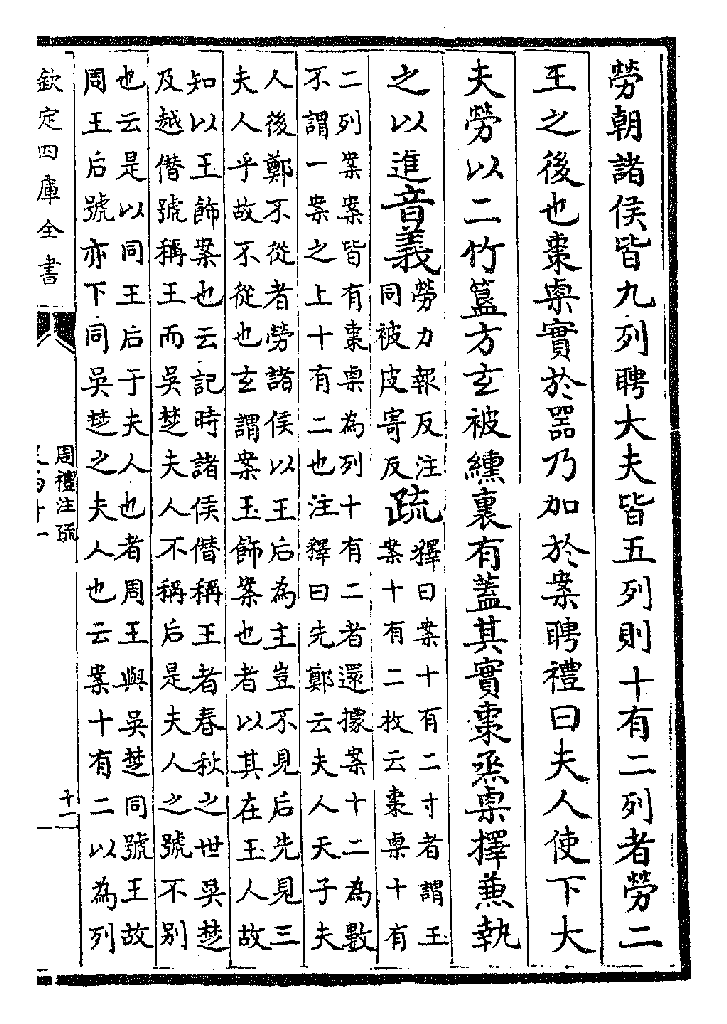 勞朝諸侯皆九列聘大夫皆五列則十有二列者勞二
王之後也棗㮚實於器乃加於案聘禮曰夫人使下大
夫勞以二竹簋方玄被纁裏有蓋其實棗烝㮚擇兼執
之以進音義勞力報反注
同被皮寄反疏釋曰案十有二寸者謂玉
案十有二枚云棗㮚十有
二列案案皆有棗㮚為列十有二者還據案十二為數
不謂一案之上十有二也注釋曰先鄭云夫人天子夫
人後鄭不從者勞諸侯以王后為主豈不見后先見三
夫人乎故不從也玄謂案玉飾案也者以其在玉人故
知以玉飾案也云記時諸侯僭稱王者春秋之世吳楚
及越僭號稱王而吳楚夫人不稱后是夫人之號不別
也云是以同王后于夫人也者周王與吳楚同號王故
周王后號亦下同吳楚之夫人也云案十有二以為列
欽定四庫全書
周禮注疏
十一